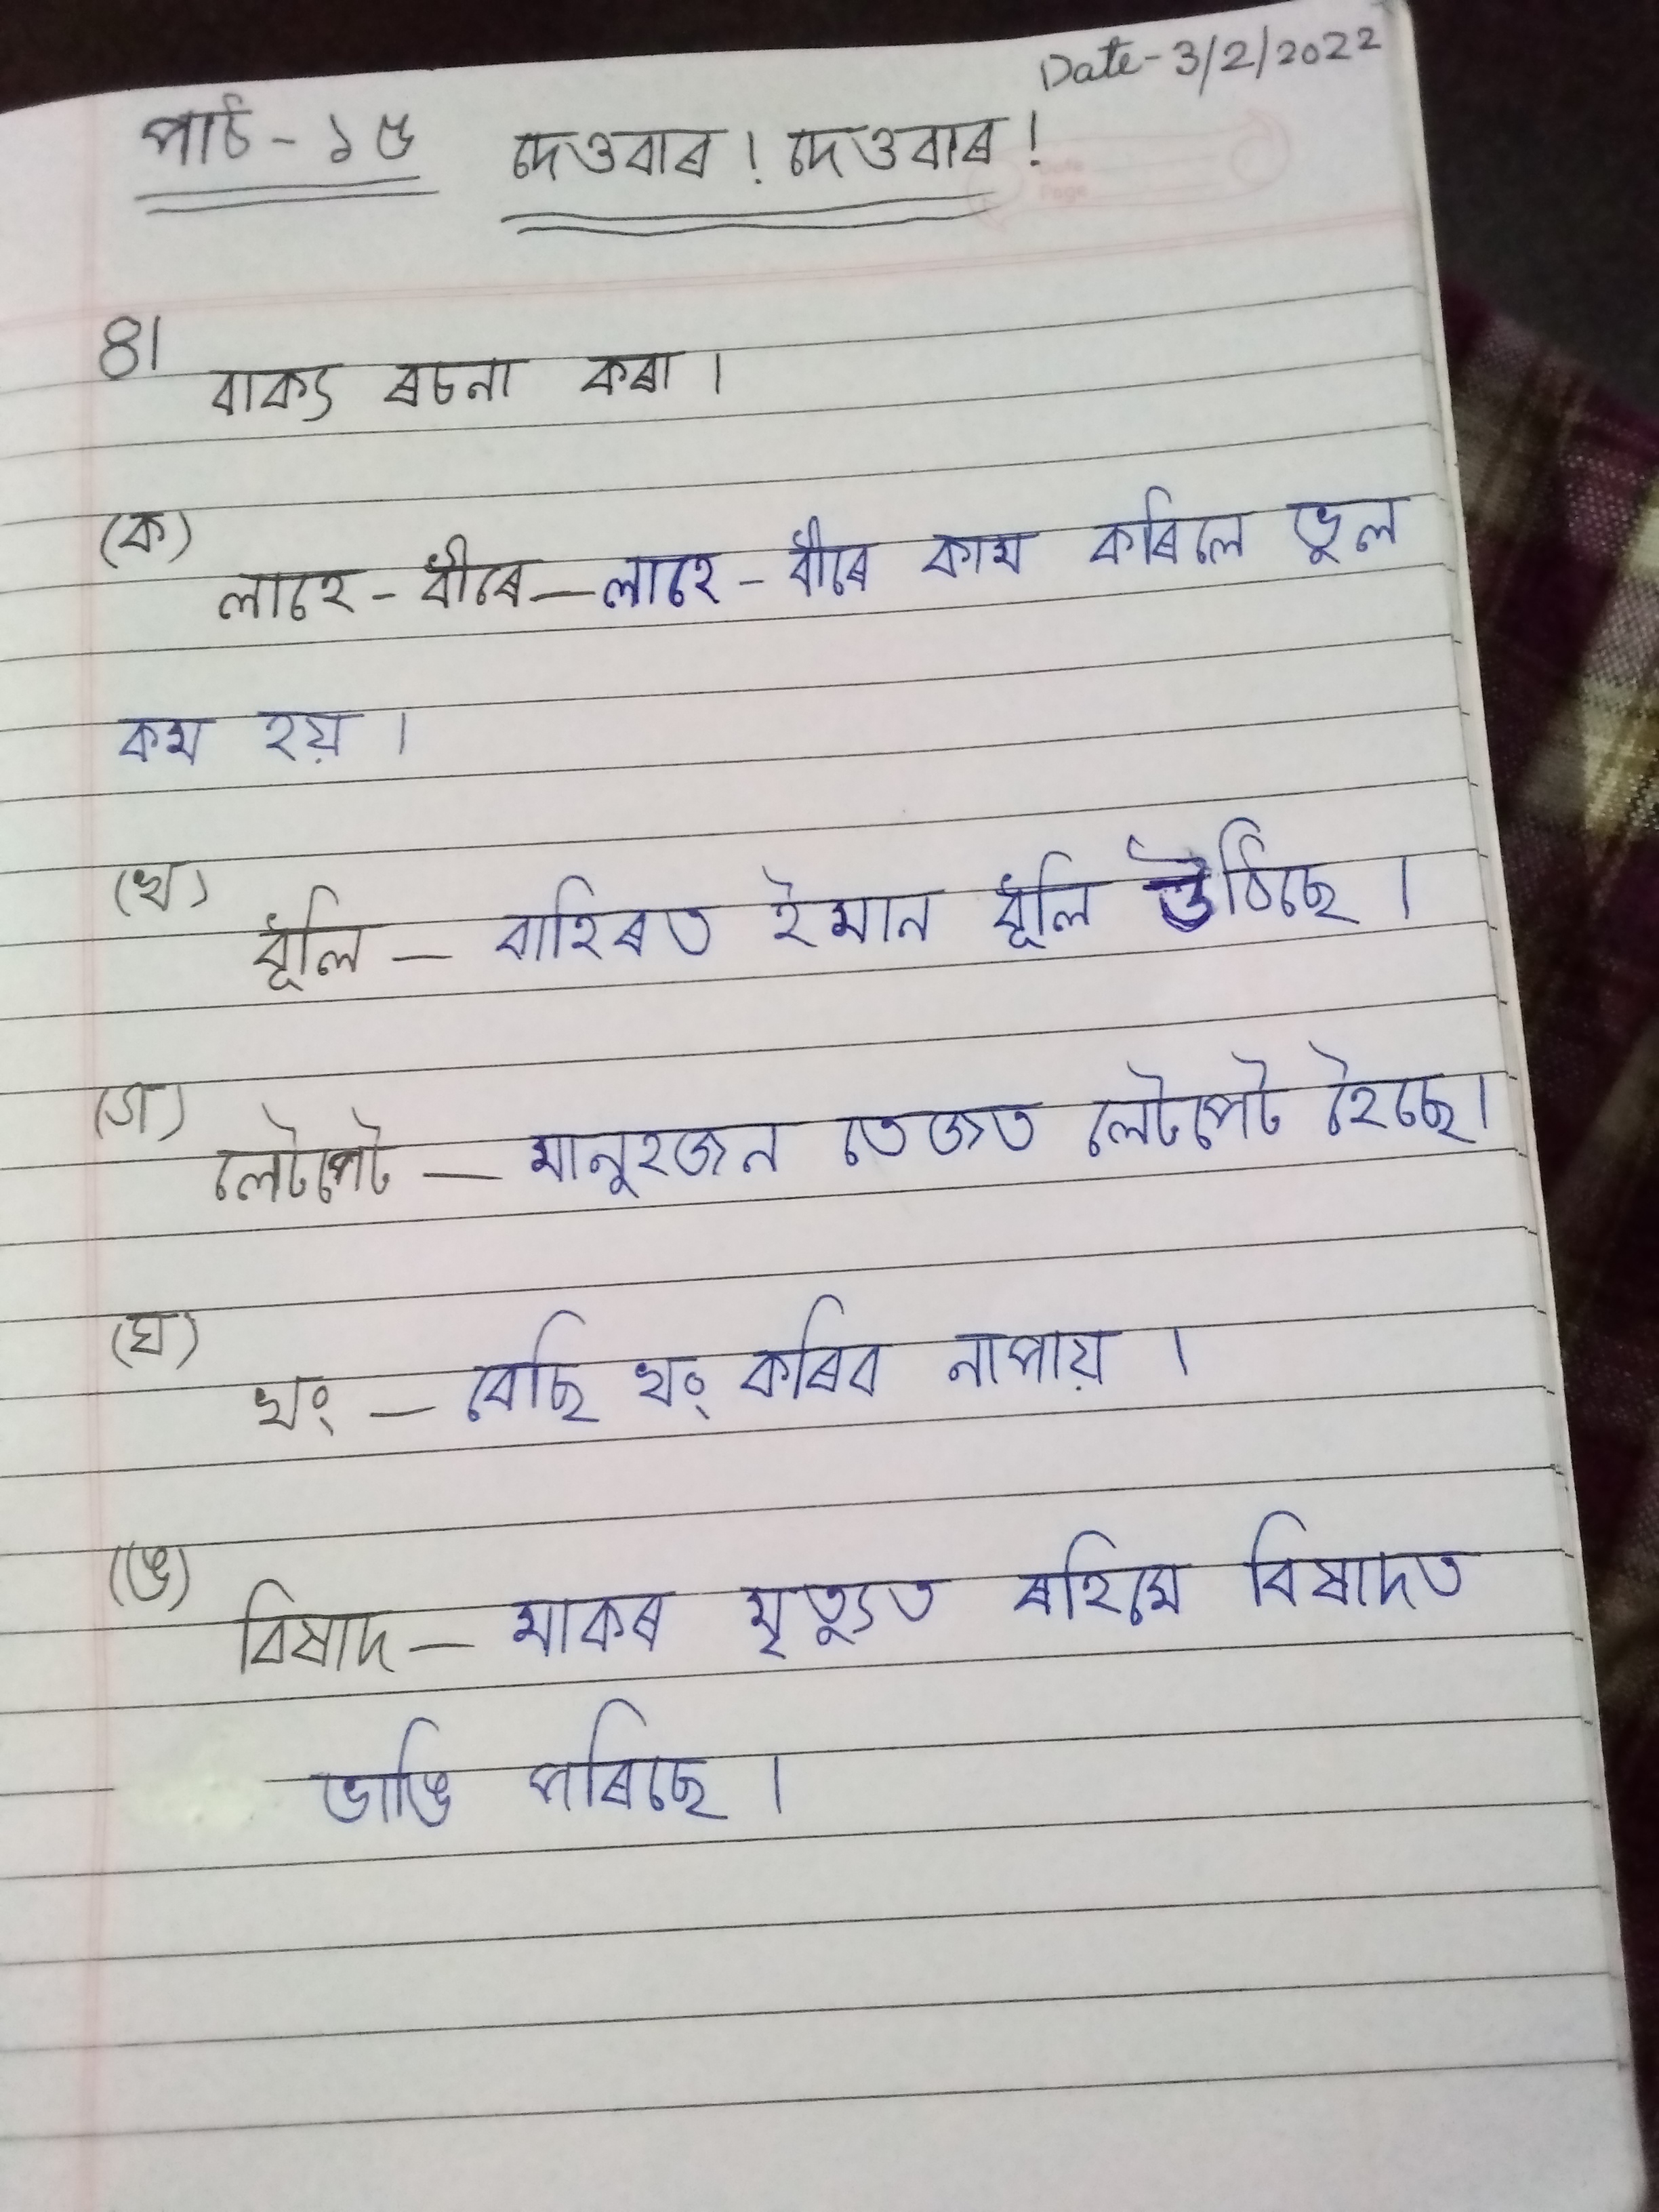 Date-3/2/2022
পাঠ - ১৫ দেওবাৰ ! দেওবাৰ !
৪।
বাক্য ৰচনা কৰা ।
(ক)
লাহে - ধীৰে — লাহে - ধীৰে কাম কৰিলে ভুল
কম হয় ।
(খ)
ধূলি — বাহিৰত ইমান ধূলি উঠিছে ।
(গ)
লেটেপেটে — মানুহজন তেজত লেটেপেটে হৈছে।
(ঘ)
খং — বেছি খং কৰিব নাপায় ।
(ঙ)
বিষাদ — মাকৰ মৃত্যুত ৰহিমে বিষাদত
ভাঙি পৰিছে ।